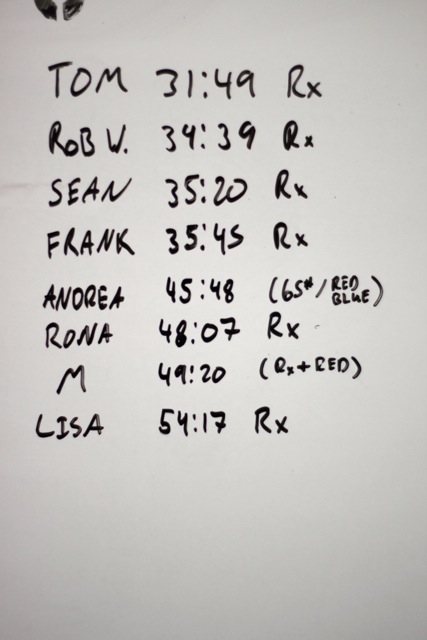 TOM 31:49 Rx
ROB W. 34:39 Rx
SEAN 35:20 Rx
FRANK 35:45 Rx
ANDREA 45:48 (65#/RED BLUE)
RONA 48:07 Rx
M 49:20 (Rx+RED)
LISA 54:17 Rx